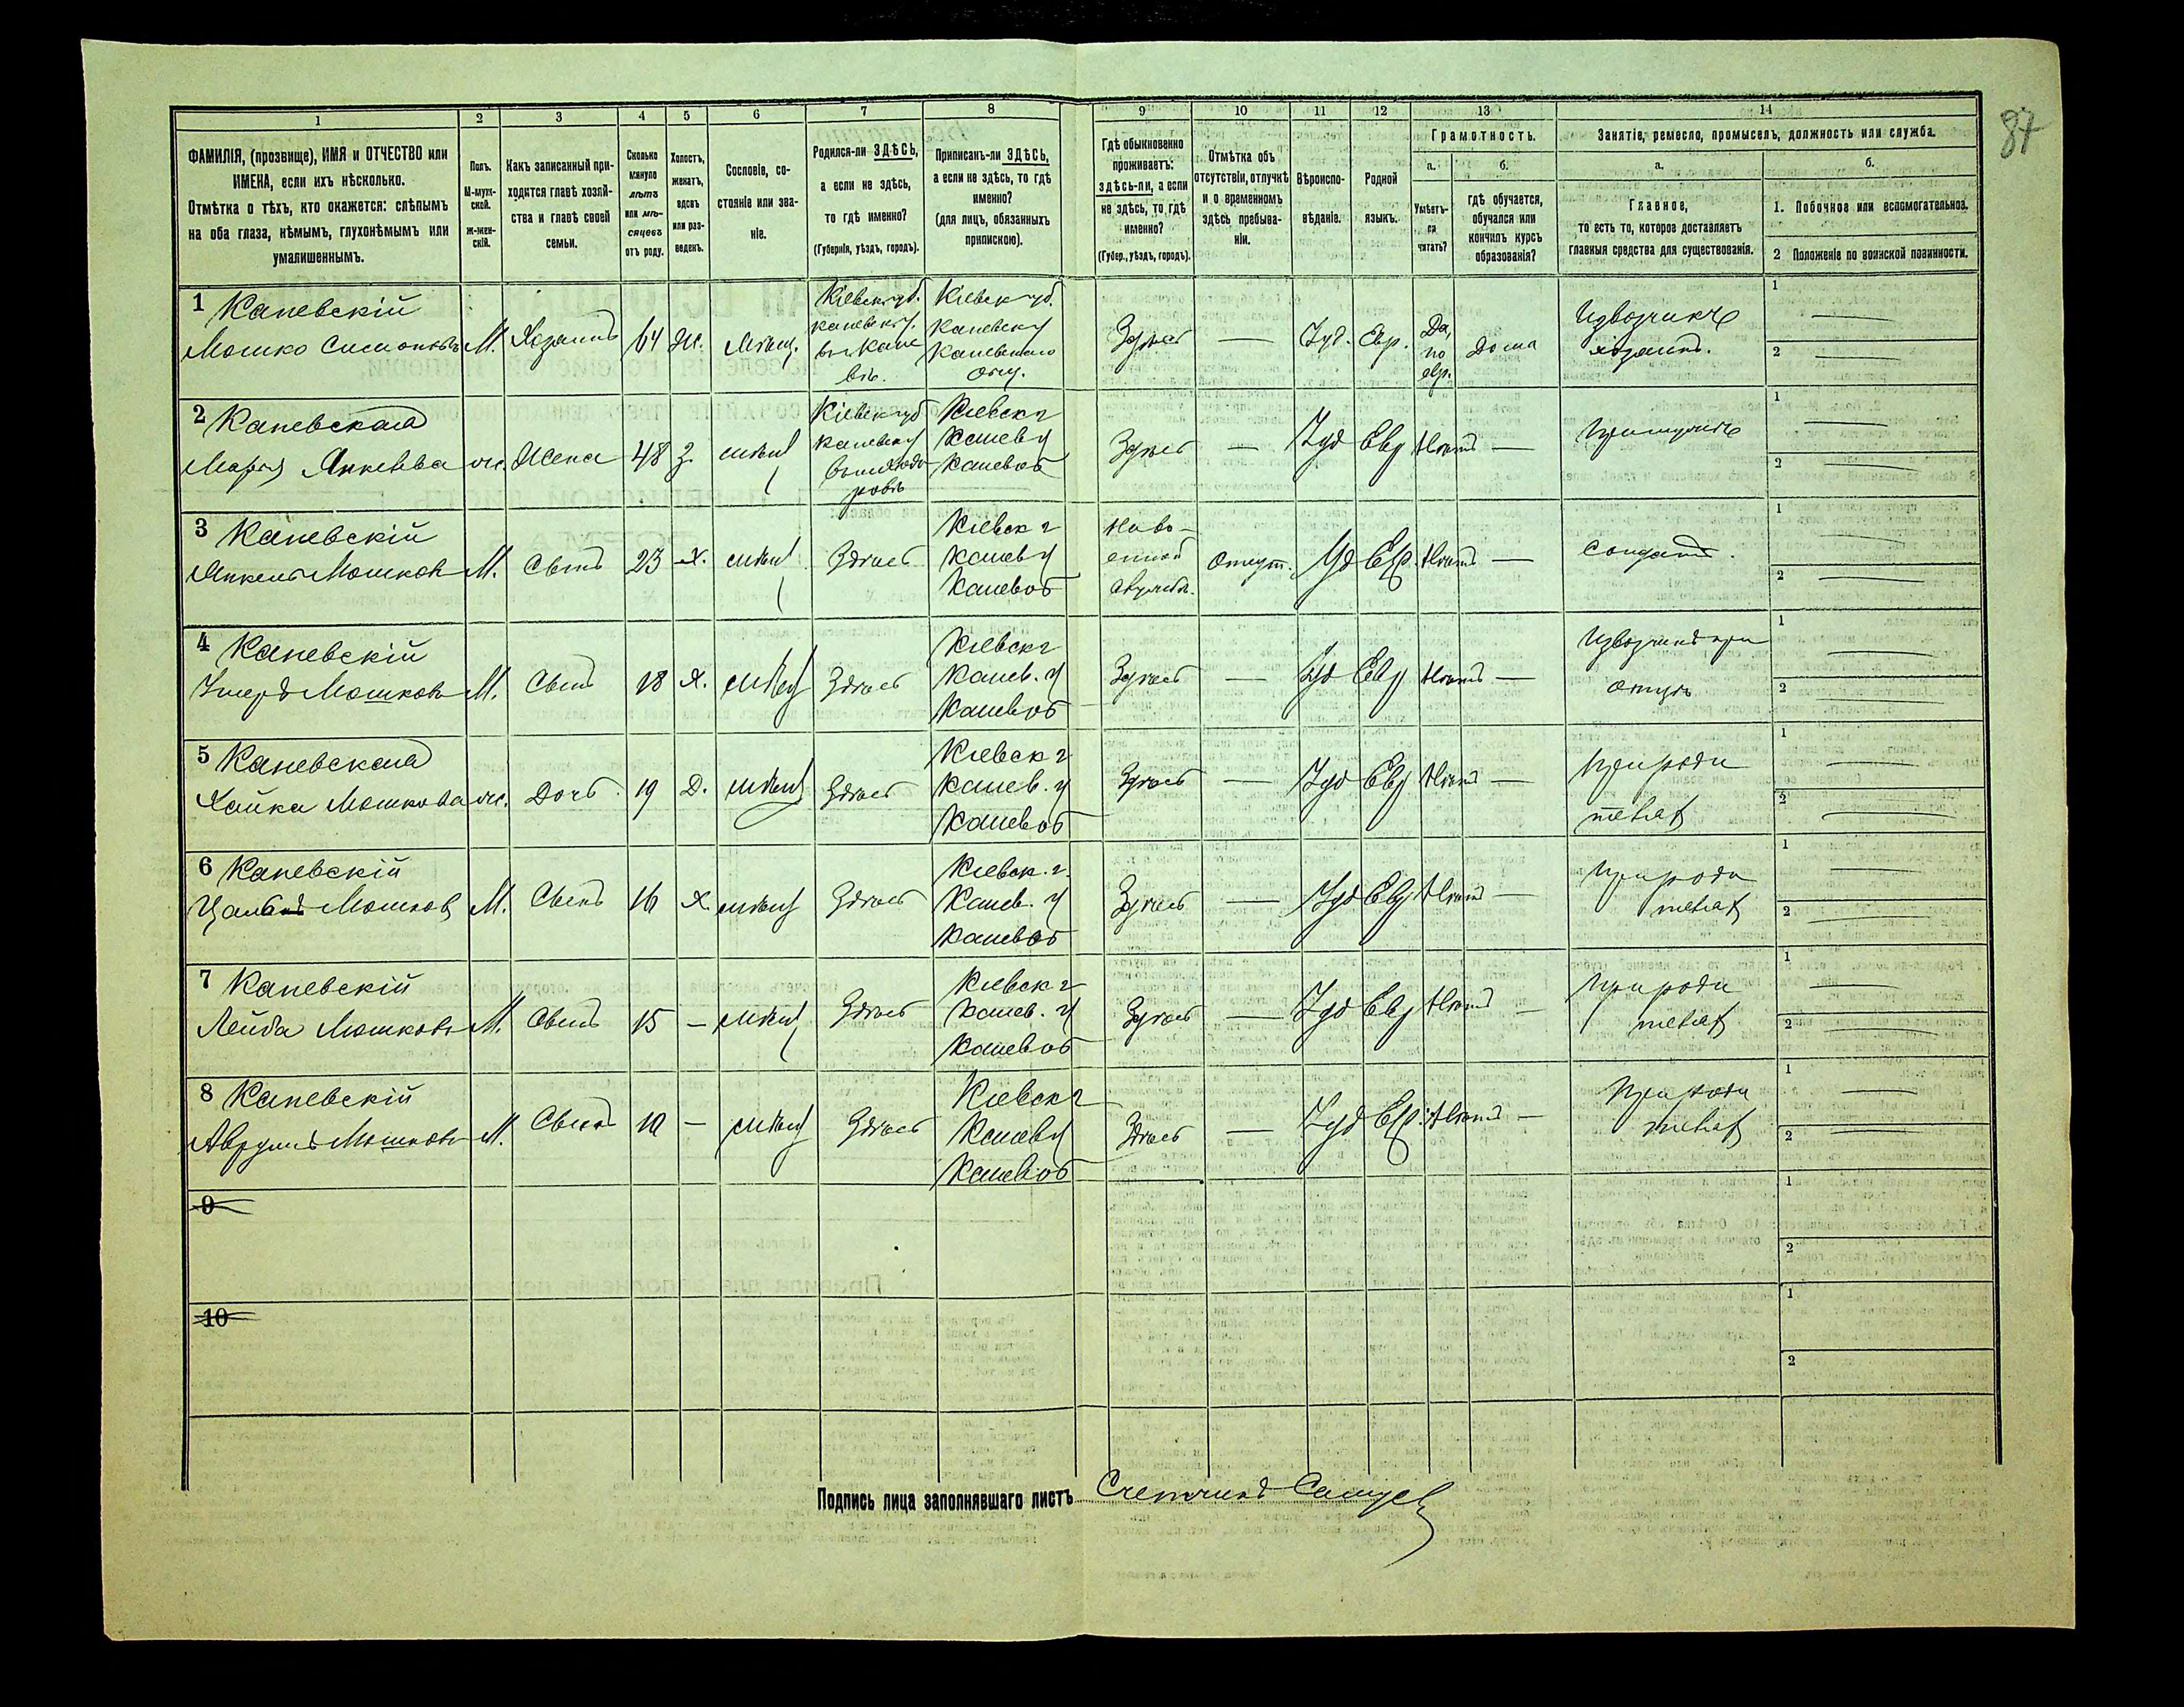 87
1 2 3 4 5 6 7 8 9 10 11 12 13 14
ФАМИЛІЯ, (прозвище), ИМЯ и ОТЧЕСТВО или
ИМЕНА, если ихъ нѣсколько.
Отмѣтка о тѣхъ, кто окажется: слѣпымъ
на оба глаза, нѣмымъ, глухонѣмымъ или
умалишеннымъ.
Полъ.
М-муж-
ской.
Ж-жен-
скій.
Какъ записанный при-
ходится главѣ хозяй-
ства и главѣ своей
семьи.
Сколько
минуло
лѣтъ
или мѣ-
сяцевъ
отъ роду.
Холостъ,
женатъ,
вдовъ
или раз-
веденъ.
Сословіе, со-
стояніе или зва-
ніе.
Родился-ли ЗДѢСЬ,
а если не здѣсь,
то гдѣ именно?
(Губернія, уѣздъ, городъ).
Приписанъ-ли ЗДѢСЬ,
а если не здѣсь, то гдѣ
именно?
(для лицъ, обязанныхъ
припискою).
Гдѣ обыкновенно
проживаетъ:
здѣсь-ли, а если
не здѣсь, то гдѣ
именно?
(Губер., уѣздъ, городъ).
Отмѣтка объ
отсутствіи, отлучкѣ
и о временномъ
здѣсь пребыва-
ніи.
Вѣроиспо-
вѣданіе.
Родной
языкъ.
Грамотность.
а.
Умѣетъ-
ли
читать?
б.
гдѣ обучается,
обучался или
кончилъ курсъ
образованія?
Занятіе, ремесло, промыселъ, должность или служба.
а.
Главное,
то есть то, которое доставляетъ
главныя средства для существованія.
б.
1. Побочное или вспомогательное.
2 Положеніе по воинской повинности.
1 Каневскій
Мошко Симоновъ
М.
Хозяинъ
64
Ж.
Мѣщ.
Кіевск губ.
каневск у.
Кіевск губ.
Каневск у
Каневскаго
общ.
Здѣсь
—
Іуд.
Евр.
Да,
по
евр.
Дома
Извозчикъ
хозяинъ.
1
2
2 Каневская
Жена
48
З
мѣщ
Кіевск губ
каневск у
Кіевск г
Канев у
Канев об
Здѣсь
—
Іуд
Евр
Нѣтъ
—
При мужѣ
1
2
3 Каневскій
Янкель Мошковъ
М.
Сынъ
23
Х.
мѣщ
Здѣсь
Кіевск г
Канев у
Канев об
На во-
енной
службѣ.
Отсут.
Іуд
Евр.
Нѣтъ
—
Солдатъ.
1
2
4 Каневскій
М.
Сынъ
18
Х.
мѣщ
Здѣсь
Кіевск г
Канев. у
Канев об
Здѣсь
—
Іуд
Евр
Нѣтъ
—
Извозчикъ при
отцѣ
1
2
5 Каневская
Хайка Мошкова
ж.
Дочь
19
Д.
мѣщ
Здѣсь
Кіевск г
Канев. у
Канев об
Здѣсь
—
Іуд
Евр
Нѣтъ
—
При роди
теляхъ
1
2
6 Каневскій
М.
Сынъ
16
Х.
мѣщ
Здѣсь
Кіевск. г.
Канев. у
Канев об
Здѣсь
—
Іуд
Евр
Нѣтъ
—
При роди
теляхъ
1
2
7 Каневскій
Лейба Мошковъ
М.
Сынъ
15
—
мѣщ
Здѣсь
Кіевск г
Канев. у
Канев об
Здѣсь
—
Іуд
Евр
Нѣтъ
—
При роди
теляхъ
1
2
8 Каневскій
Аврумъ Мошковъ
М.
Сынъ
10
—
мѣщ
Здѣсь
Кіевск г
Канев у
Канев об
Здѣсь
—
Іуд
Евр.
Нѣтъ
—
При роди
теляхъ
1
2
9
1
2
10
1
2
Подпись лица заполнявшаго листъ Счетчикъ